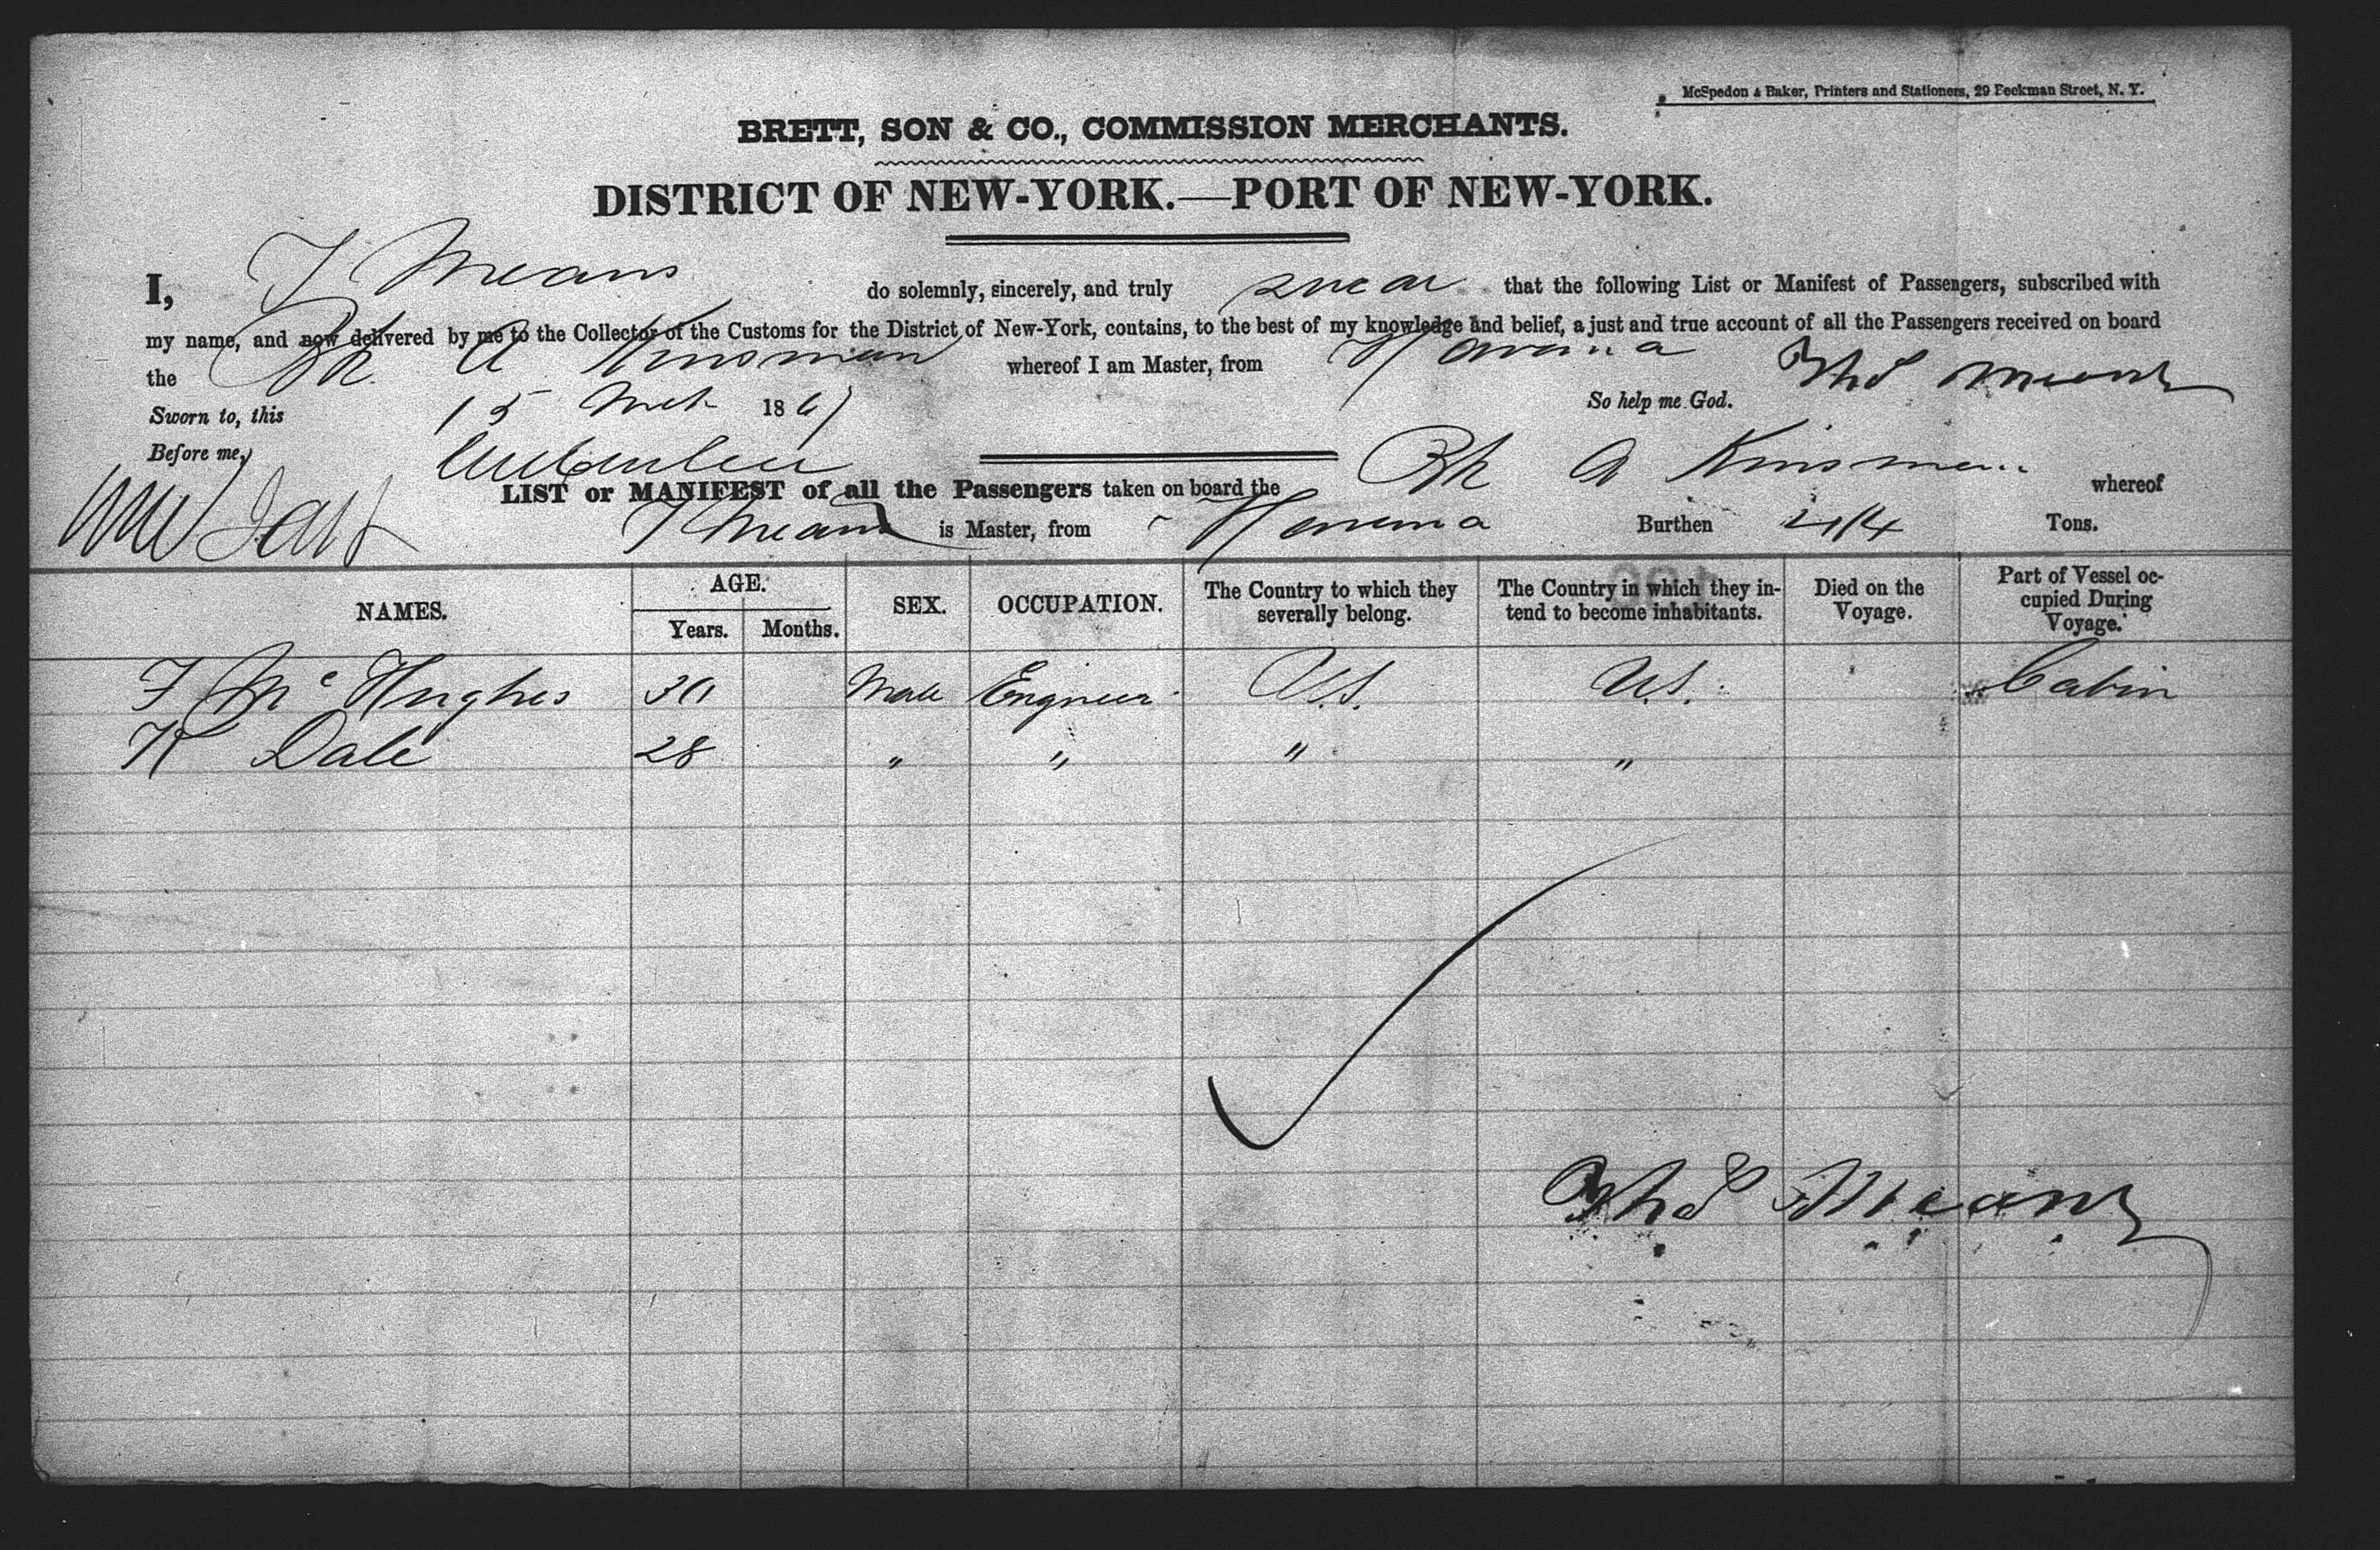 McSpedon & Baker, Printers and Stationers, 29 Beekman Street, N. Y.
BRETT, SON & CO., COMMISSION MERCHANTS.
DISTRICT OF NEW-YORK.—PORT OF NEW-YORK.
I, T Means do solemnly, sincerely, and truly swear that the following List or Manifest of Passengers, subscribed with
my name, and now delivered by me to the Collector of the Customs for the District of New-York, contains, to the best of my knowledge and belief, a just and true account of all the Passengers received on board
the Bk A Kinsman whereof I am Master, from Havana
Sworn to, this 15 Mch 1867 So help me God. Thos Means
Before me,
LIST or MANIFEST of all the Passengers taken on board the Bk A Kinsman whereof
T Means is Master, from Havana Burthen Tons.
NAMES. AGE. Years. Months. SEX. OCCUPATION. The Country to which they severally belong. The Country in which they intend to become inhabitants. Died on the Voyage. Part of Vessel occupied During Voyage.
F Mc Hughes 30 Male Engineer U.S. U.S. Cabin
K Dale 28 " " " "
Thos Means